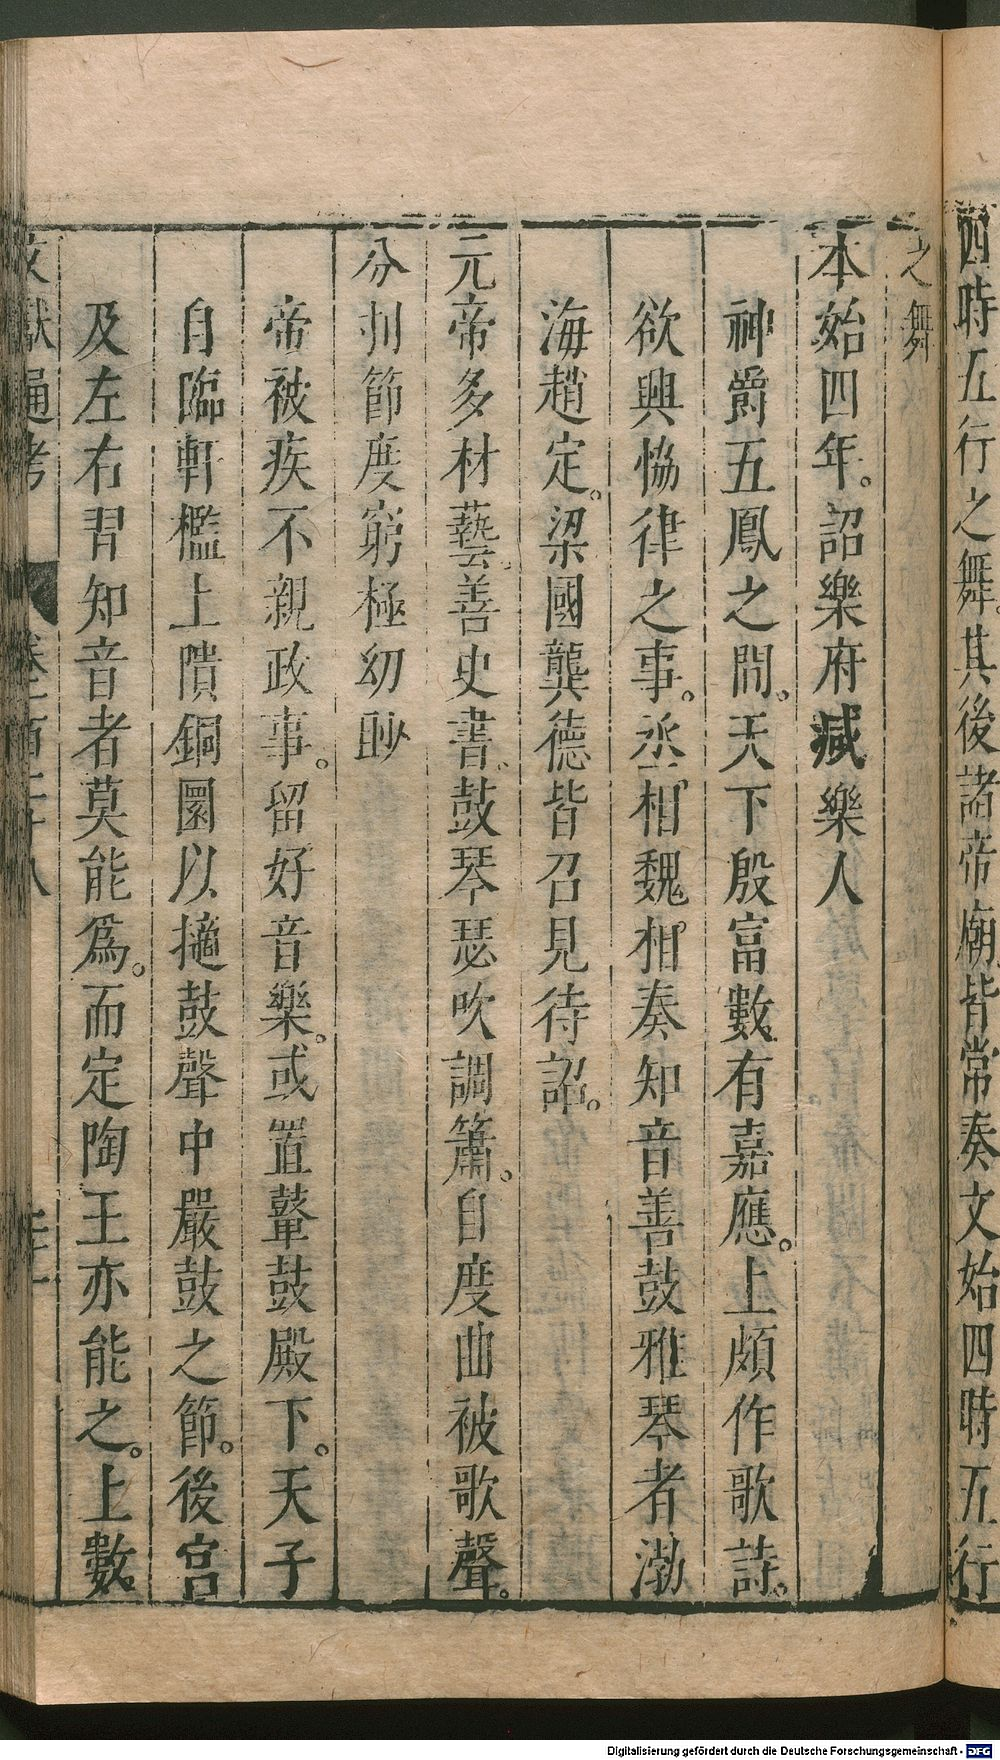 四時五行之舞其後諸帝廟皆常奏文始四時五行
之舞
本始四年。詔樂府減樂人
神爵五鳳之間。天下殷富數有嘉應。上頗作歌詩。
欲興恊律之事。丞相魏相奏知音善鼓雅琴者渤
海趙定。梁國龔德皆召見待詔。
元帝多材藝。善史書、鼓琴瑟吹調簫。自度曲被歌聲。
分刌節度窮極幼眇
帝被疾不親政事。留好音樂。或置鼙鼓殿下。天子
自臨軒檻上隤銅圜以擿鼓聲中嚴鼓之節。後宫
及左右習知音者莫能爲。而定陶王亦能之。上數
文獻通考 卷一百二十八
Digitalisierung gefördert durch die Deutsche Forschungsgemeinschaft - DFG